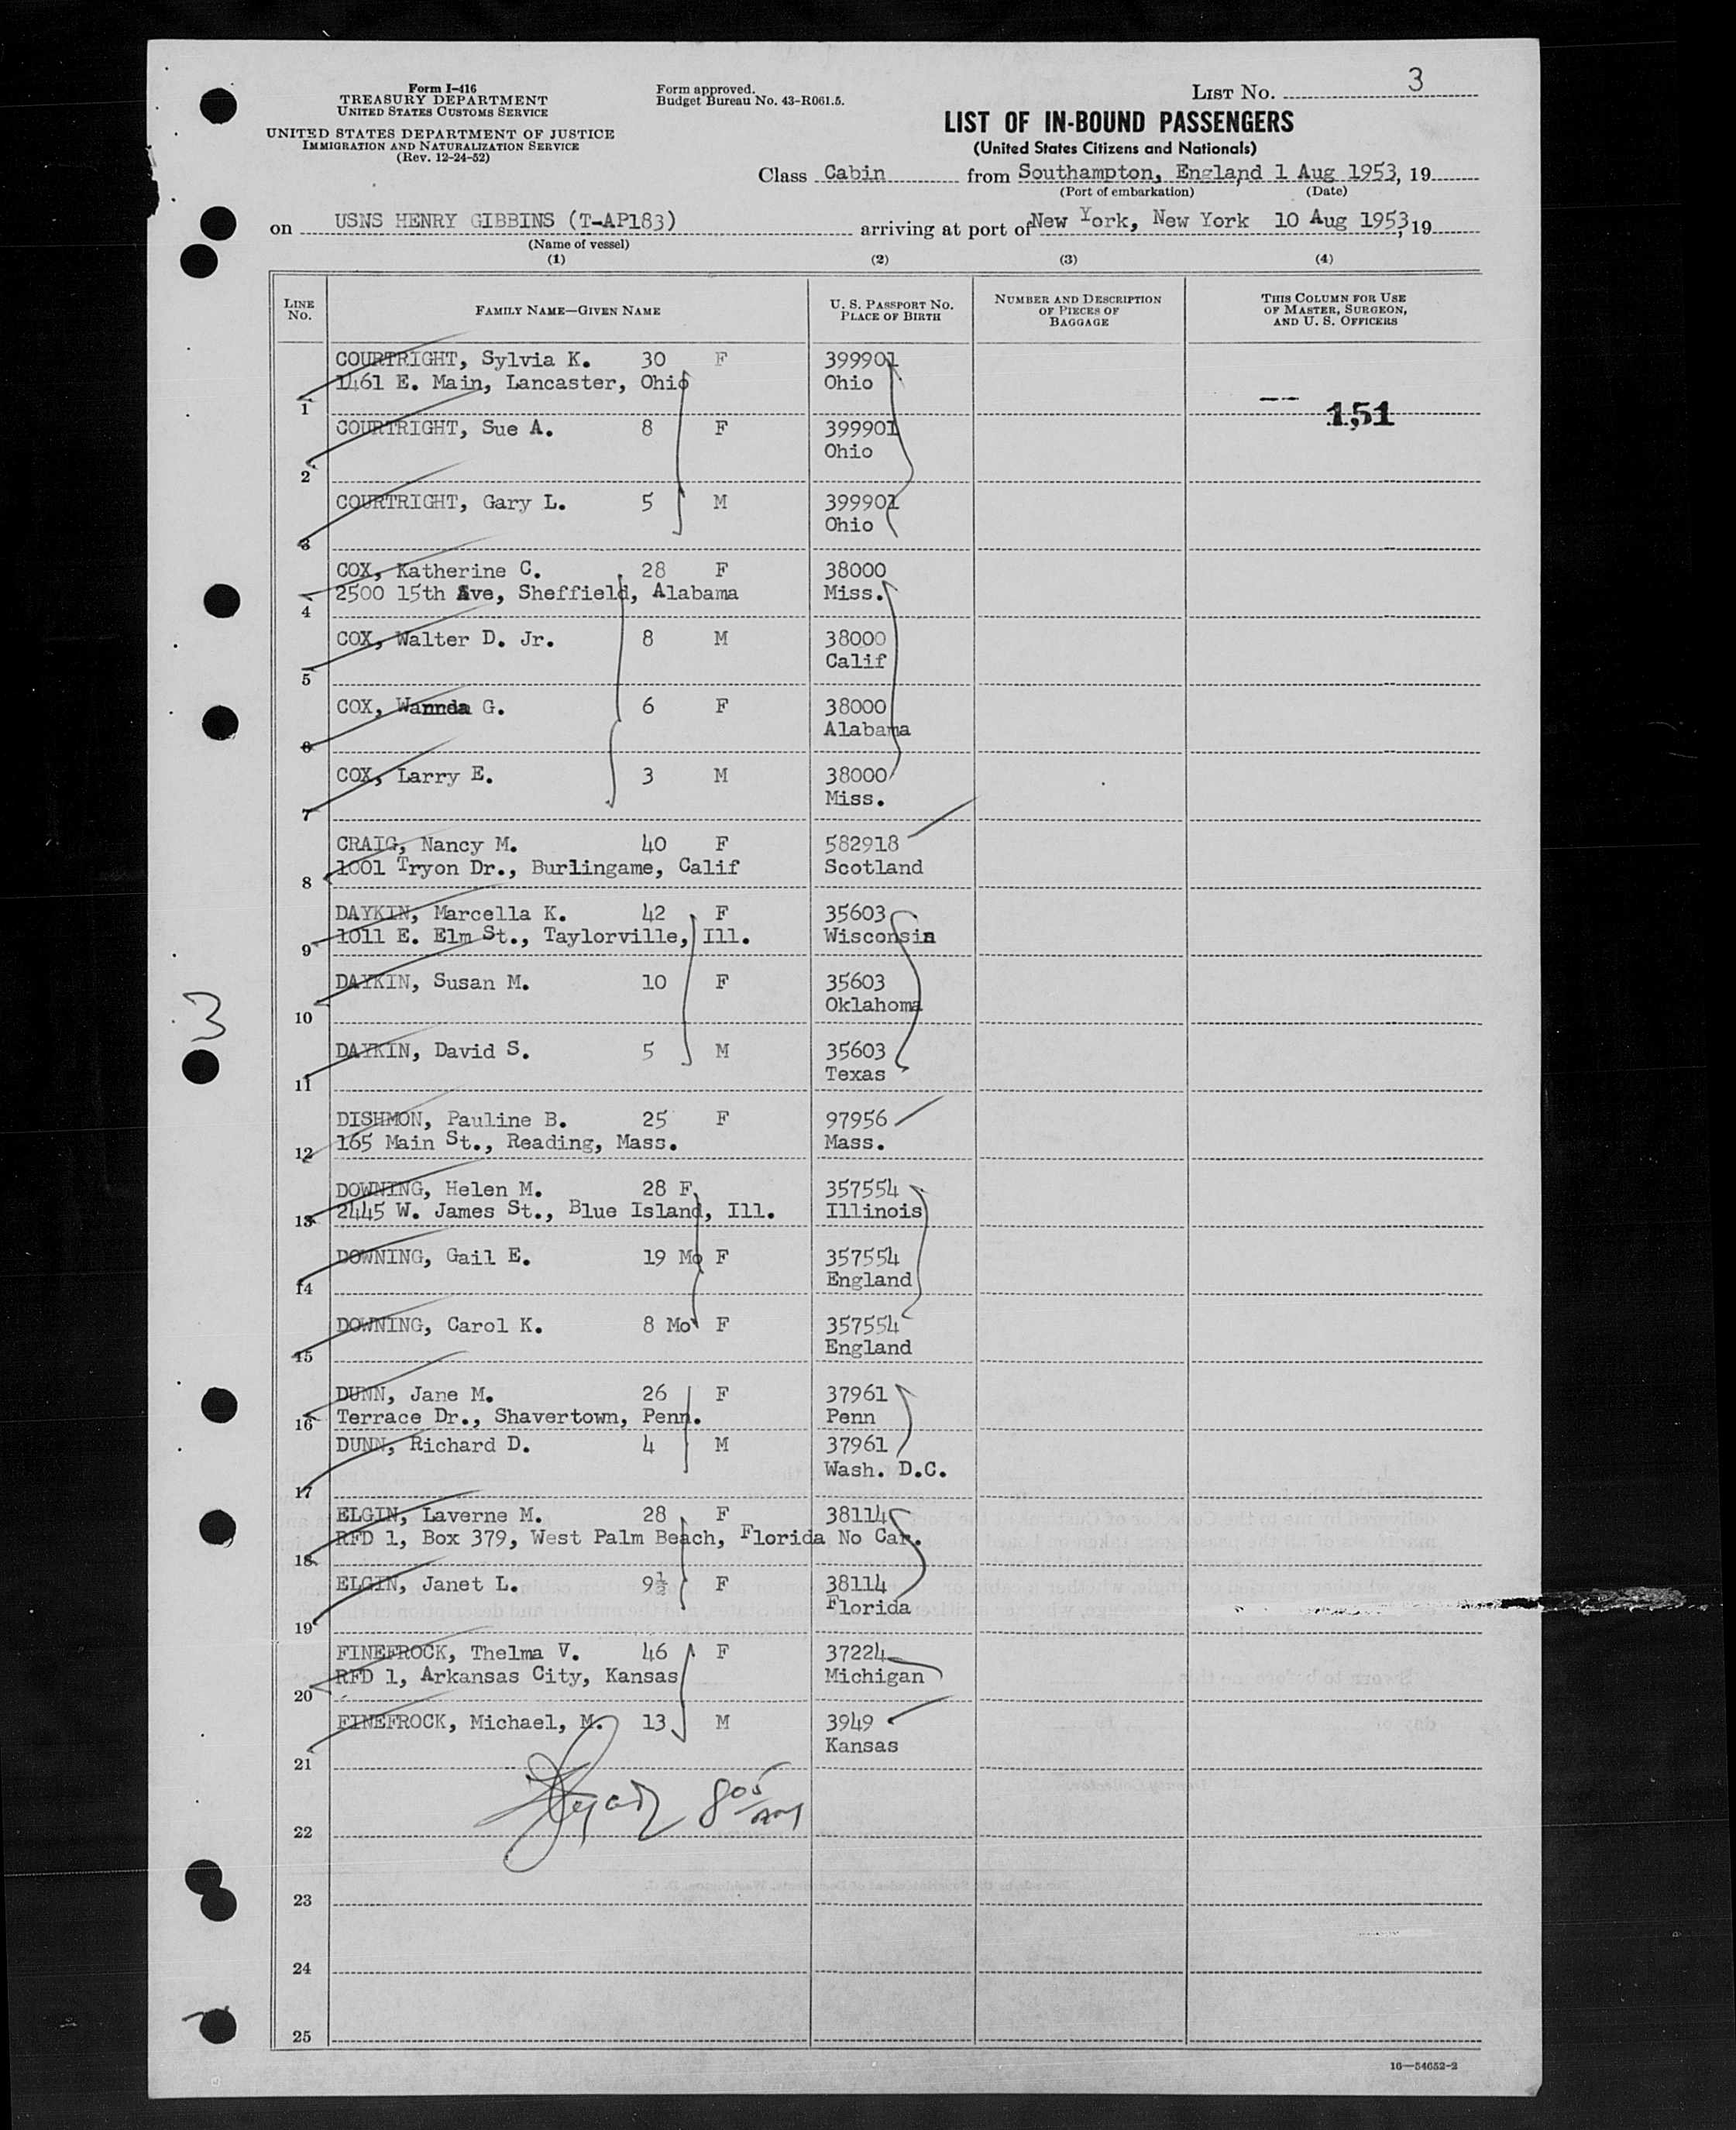 Form I-416
TREASURY DEPARTMENT
UNITED STATES CUSTOMS SERVICE
UNITED STATES DEPARTMENT OF JUSTICE
IMMIGRATION AND NATURALIZATION SERVICE
(Rev. 12-24-52)
Form approved.
Budget Bureau No. 43-R061.5.
LIST No. 3
LIST OF IN-BOUND PASSENGERS
(United States Citizens and Nationals)
Class Cabin from Southampton, England 1 Aug 1953, 19
(Port of embarkation) (Date)
on USNS HENRY GIBBINS (T-AP183) arriving at port of New York, New York 10 Aug 1953, 19
(Name of vessel)
(1) (2) (3) (4)
LINE No. FAMILY NAME—GIVEN NAME U. S. PASSPORT No. PLACE OF BIRTH NUMBER AND DESCRIPTION OF PIECES OF BAGGAGE THIS COLUMN FOR USE OF MASTER, SURGEON, AND U. S. OFFICERS
COURTRIGHT, Sylvia K. 30 F 399901
1461 E. Main, Lancaster, Ohio Ohio
1 151
COURTRIGHT, Sue A. 8 F 399901
Ohio
2
COURTRIGHT, Gary L. 5 M 399901
Ohio
3
COX, Katherine C. 28 F 38000
2500 15th Ave, Sheffield, Alabama Miss.
4
COX, Walter D. Jr. 8 M 38000
Calif
5
COX, Wannda G. 6 F 38000
Alabama
6
COX, Larry E. 3 M 38000
Miss.
7
CRAIG, Nancy M. 40 F 582918
1001 Tryon Dr., Burlingame, Calif Scotland
8
DAYKIN, Marcella K. 42 F 35603
1011 E. Elm St., Taylorville, Ill. Wisconsin
9
DAYKIN, Susan M. 10 F 35603
Oklahoma
10
3
DAYKIN, David S. 5 M 35603
Texas
11
DISHMON, Pauline B. 25 F 97956
165 Main St., Reading, Mass. Mass.
12
DOWNING, Helen M. 28 F 357554
2445 W. James St., Blue Island, Ill. Illinois
13
DOWNING, Gail E. 19 Mo F 357554
England
14
DOWNING, Carol K. 8 Mo F 357554
England
15
DUNN, Jane M. 26 F 37961
16 Terrace Dr., Shavertown, Penn. Penn
DUNN, Richard D. 4 M 37961
Wash. D.C.
17
ELGIN, Laverne M. 28 F 38114
RFD 1, Box 379, West Palm Beach, Florida No Car.
18
ELGIN, Janet L. 9½ F 38114
Florida
19
FINEFROCK, Thelma V. 46 F 37224
RFD 1, Arkansas City, Kansas Michigan
20
FINEFROCK, Michael, M. 13 M 3949
Kansas
21
805 AM
22
23
24
25
16—54652-2